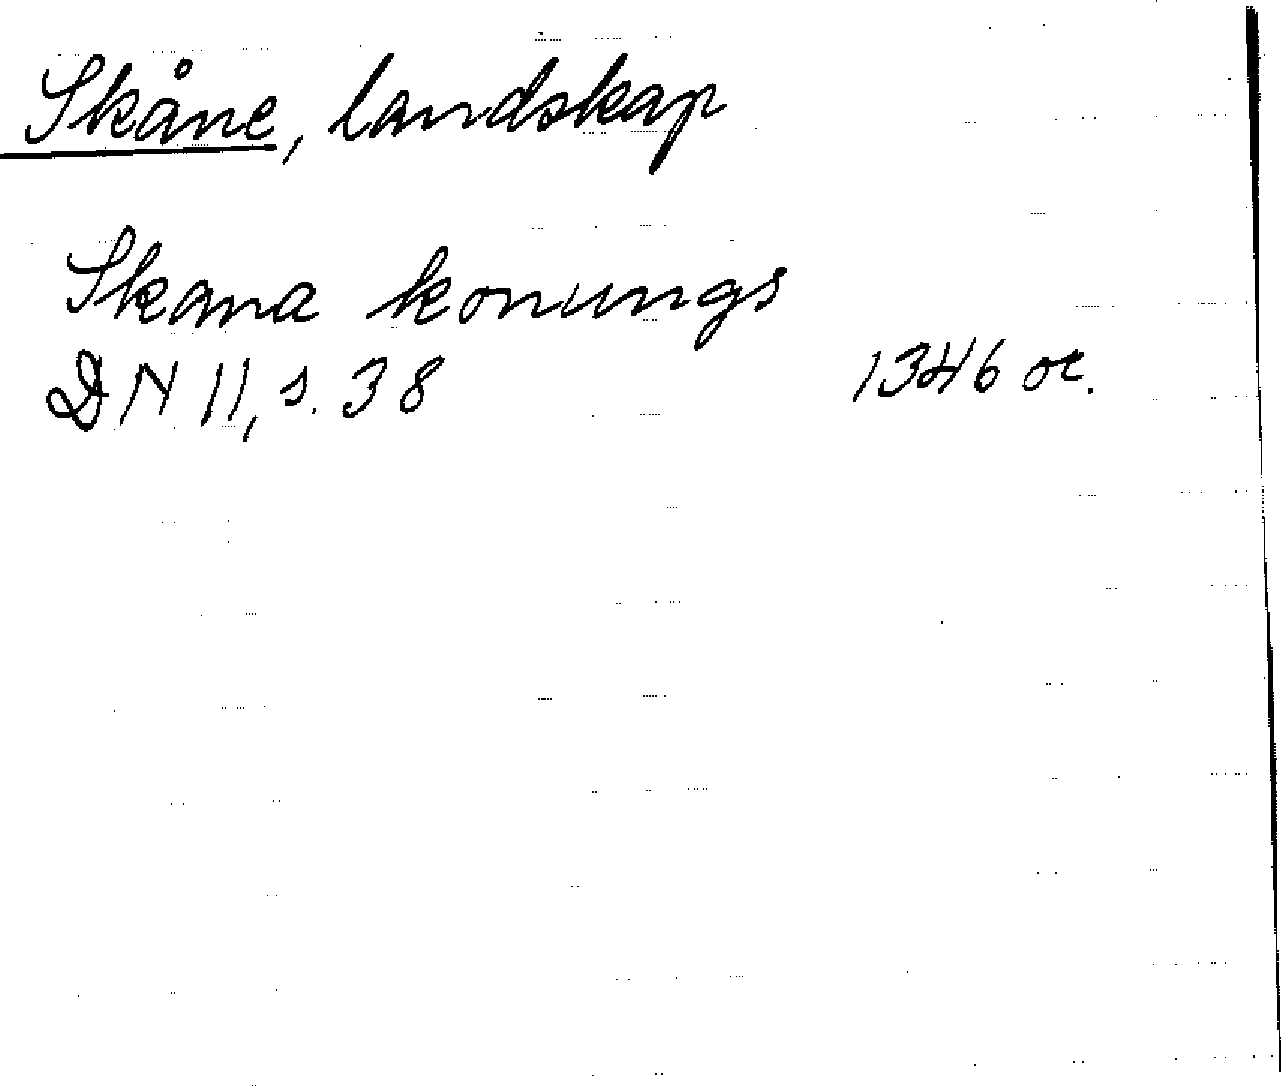 Skåne, landskap
Skana konungs
DN 11, s. 38 1346 or.